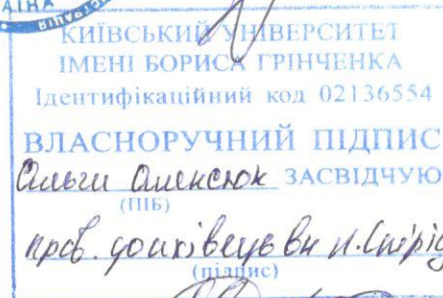 КИЇВСЬКИЙ УНІВЕРСИТЕТ
ІМЕНІ БОРИСА ГРІНЧЕНКА
Ідентифікаційний код 02136554
ВЛАСНОРУЧНИЙ ПІДПИС
Ольги Олексюк ЗАСВІДЧУЮ
(ПІБ)
пров. фахівець ВК
(підпис)